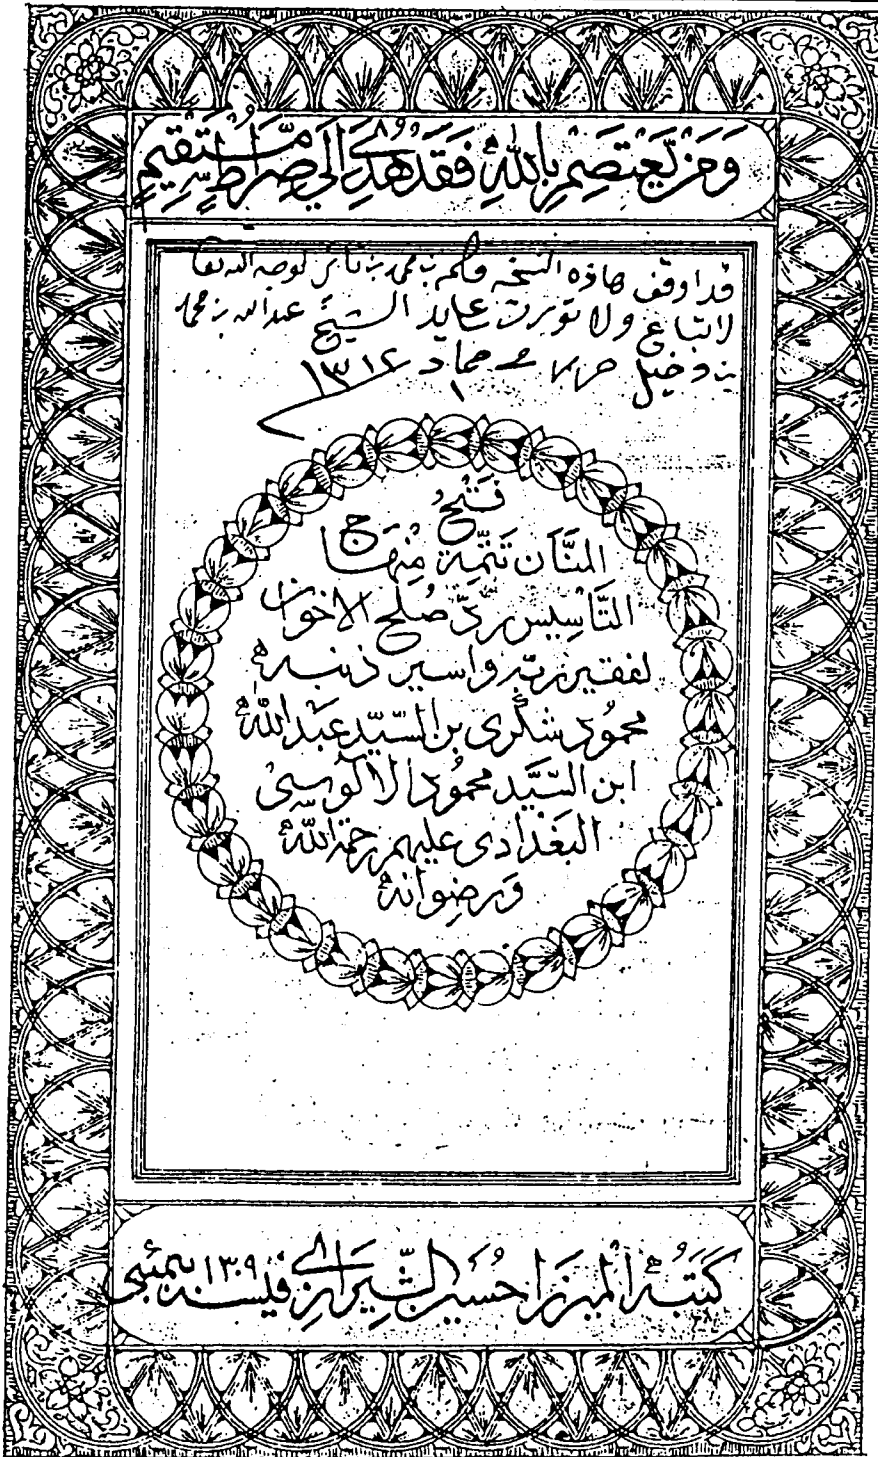 وَمَنْ يَعْتَصِمْ بِاللّٰهِ فَقَدْ هُدِيَ إِلَى صِرَاطٍ مُسْتَقِيمٍ
قد اوقف هاذه النسخه بن محمد بن لوجه الله تعا
لاتباع ولا تورث الشيخ عبدالله بن محمد
بن دخيل حرر جماد ١ ١٣١٢
فَتْحُ
المنَّان تَتمَّة مِنهَاج
التَّأسِيس ردّ صُلح الاخوان
لفقير ربّه واسير ذنبه
محمُود شكرى بن السّيّد عبدالله
ابن السَّيّد محمُود الآلوسِى
البَغدَادى عليهم رحمَة اللّٰه
وَرضوانه
كَتَبَهُ الْمِيرزَا حُسَين الشِّيرَازِي فِي سنه ١٣٠٩ بمبئى